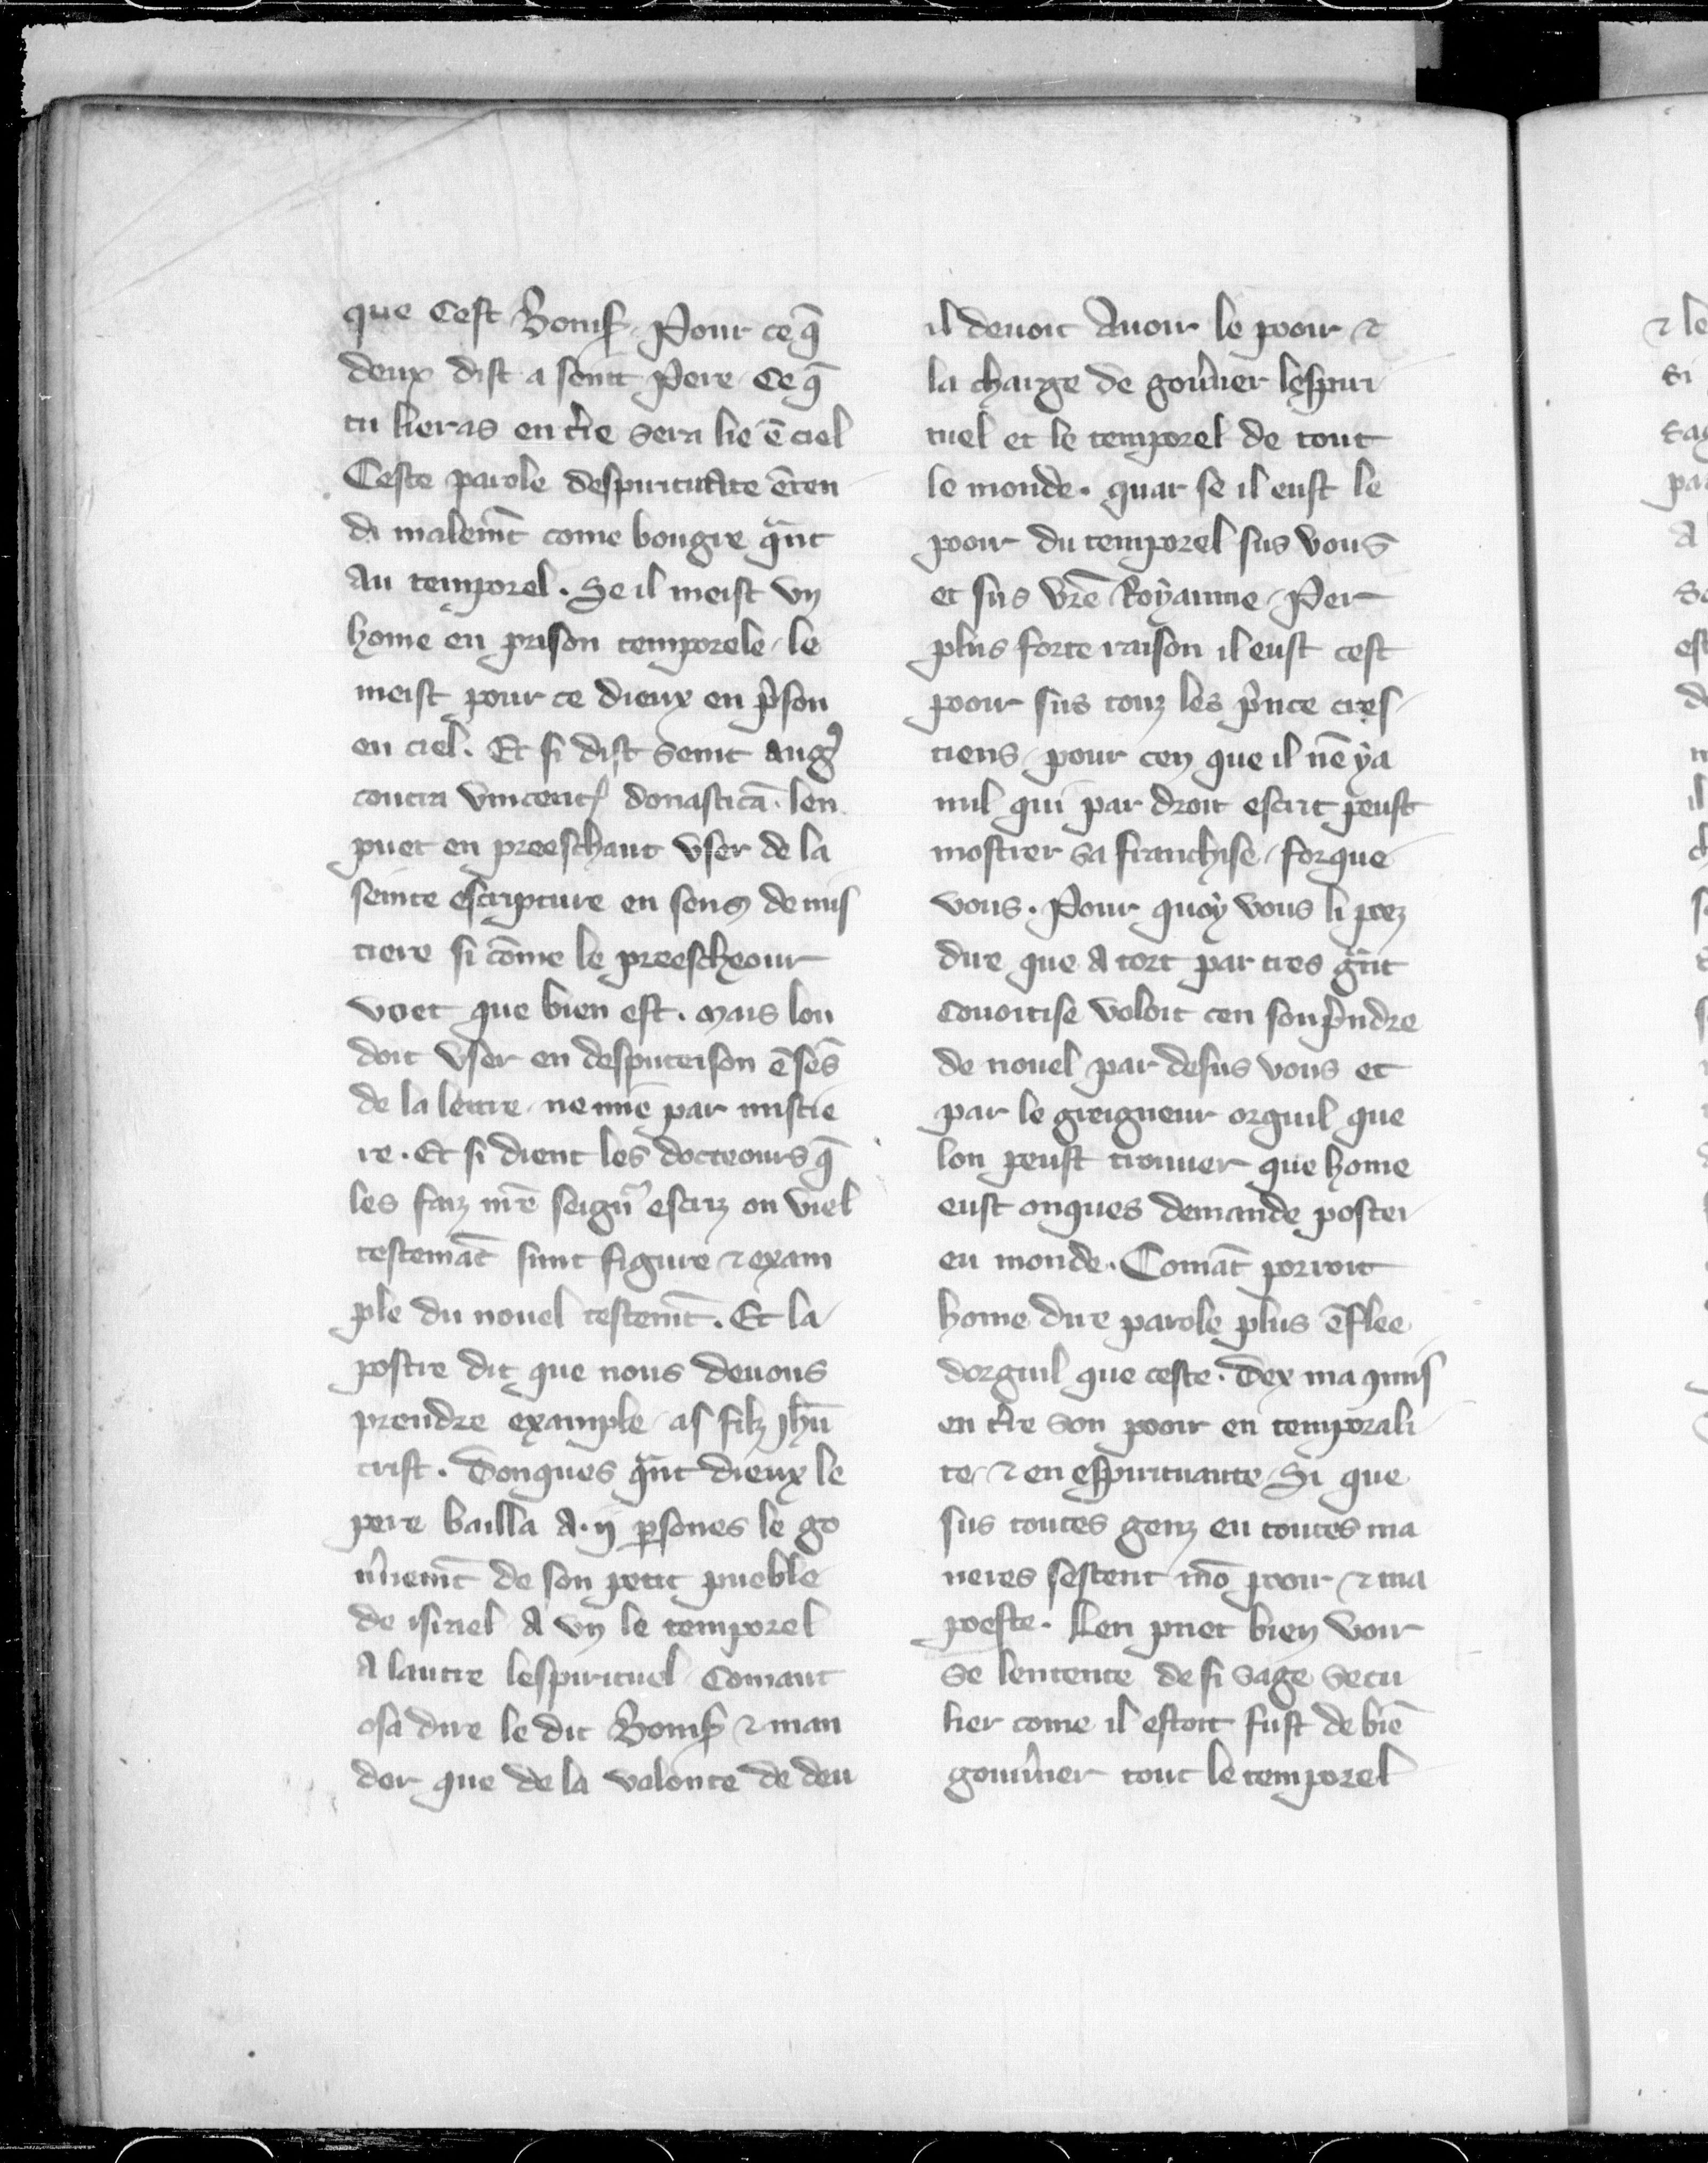 que Cest Bonif. Pour ce q̄
deux dist a seint Pere Ce q̄
tu lieras en t̄re sera lie ē ciel
Ceste parole despiritutite ēten
di malem̄t come bougre q̄nt
Au temporel. Se il meist vn
home en prison temporele le
meist pour ce dieux en p̄son
en ciel. Et si dist seint Aug9
contra vincent donasticā. len
puet en preeschant vser de la
seinte escripture en sens de mis
tiere si cōme le preescheour
voet que bien est. mais lon
doit vser en desputeison ē sēs
de la lettre ne miē par mistie
re. Et si dient les docteours q̄
les faiz nr̄e seign̄r escriz on viel
testemāt sunt figure ⁊ exam
ple du nouel testem̄t. Et la
postre dit que nous deuons
prendre example as filz Jhū
crist. Donques q̄nt dieux le
pere bailla A .ij. p̱sones le go
ūnem̄t de son petit pueble
de israel A vn le temporel
A lautre lespirituel Comant
osa dire le dit Bonif ⁊ man
der que de la volonte de deu
il deuoit Auoir le pooir ⁊
la charge de goūner lespiri
tuel et le temporel de tout
le monde. quar se il eust le
pooir du temporel sus vous
et sus vr̄e Royaume Per
plus forte raison il eust cest
pooir sus touz les p̄nce cres
tiens pour cen que il nē ya
nul qui par droit escrit peust
mostrer sa franchise forque
vous. Pour quoy vous li poez
dire que A tort par tres gr̄nt
Couoitise voloit cen soup̄ndre
de nouel par desus vous et
par le greigneur orguil que
lon peust trouuer que home
eust onques demande postei
en monde. Comāt porroit
home dire parole plus ēflee
dorguil que ceste. Dex ma ꝯmis
en t̄re son pooir en temporali
te ⁊ en espirituaute Si que
sus toutes genz en toutes ma
neres sestent mō pooir ⁊ ma
poeste. Len puet bien voir
se lentente de si sage secu
lier come il estoit fust de biē
gouūner tout le temporel